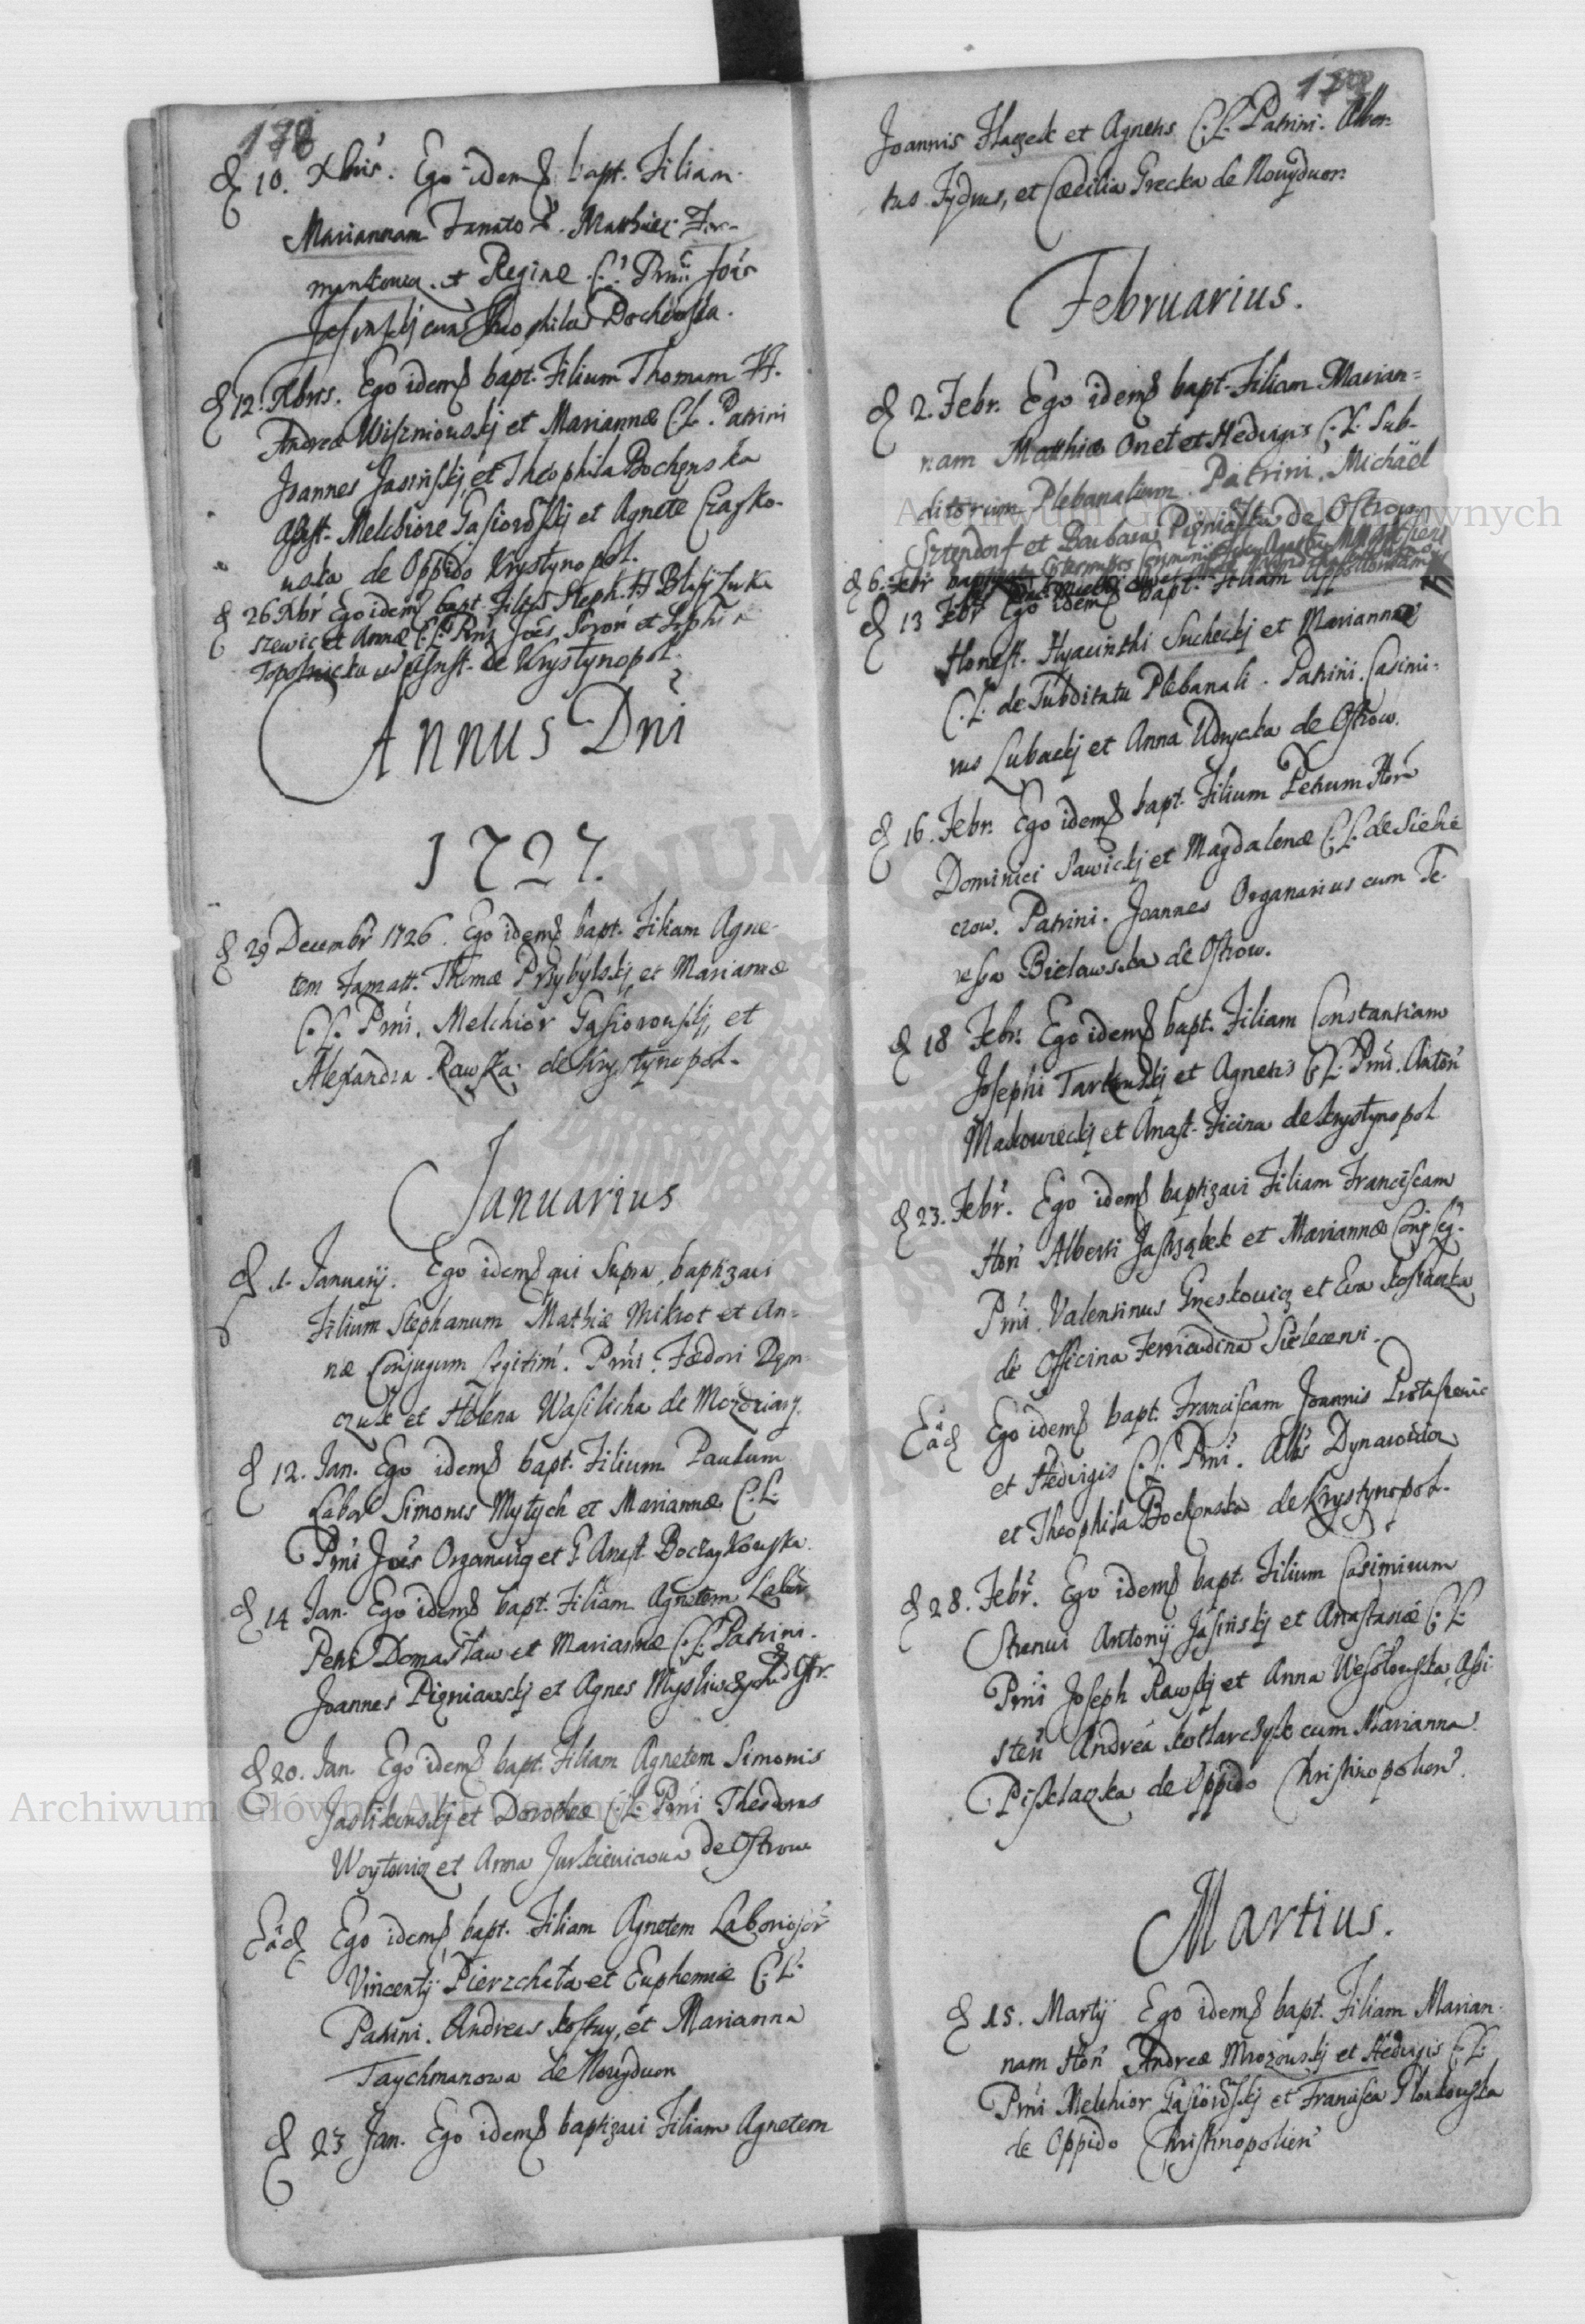 178
d 10. Xbris. Ego idem bapt. Filiam
Mariannam Famato Matthiæ For-
mankowicz et Reginæ C. L. Prni Jois
Jasinskij cum Theophila Bochenska.
d 12. Xbris. Ego idem bapt. Filium Thomam FF.
Andreæ Wiszniouskij et Mariannæ C. L. Patrini
Joannes Jasinskij, et Theophila Bochenska
Assist. Melchiore Gąsiorowskij et Agnete Czayko-
uska de Oppido Krystynopol.
d 26 Xbr Ego idem bapt. Steph. FF Blasij Luka
szewic et Annæ C. L. Prni Joes Soroń et Sophia
Topolnicka de Krystynopol.
Annus Dni
1727.
d 29 Decembr 1726. Ego idem bapt. Filiam Agne-
tem Famatt. Thomæ Przybylskij, et Mariannæ
C. L. Prni. Melchior Gąsiorouskij, et
Alexandra Rawska de Krystynopol.
Januarius
d 1. Januarij. Ego idem qui Supra, baptizaui
Filium Stephanum Mathiæ Mikrot et An-
næ Conjugum Legitim. Prni. Fœdori Dem-
czuk et Helena Wasilicha de Mozdziary.
d 12. Jan. Ego idem bapt. Filium Paulum
Labor Simonis Mytych et Mariannæ C. L.
Prni Joes Organarig et G Anast. Boczaykouska.
d 14 Jan. Ego idem bapt. Filiam Agnetem Labor
Petri Domasław et Mariannæ C. L. Patrini.
Joannes Pigniawskij et Agnes Mysliwczycha d Ostr.
d 20. Jan. Ego idem bapt. Filiam Agnetem Simonis
Jaslikouskij et Dorotheæ C. L. Prni Theodorus
Woytowicz et Anna Jurkiewiczowa de Ostrow
Eâd Ego idem bapt. Filiam Agnetem Laboriosor
Vincentij Pierzchała et Euphemiæ C. L.
Patrini. Andreas Kostuy, et Marianna
Taychmanowa de Nowydwor
d 23 Jan. Ego idem baptizaui Filiam Agnetem
179
Joannis Hazek et Agnetis C. L. Patrini. Alber-
tus Fydrus, et Cæcilia Grecka de Nouydwor.
Februarius.
d 2. Febr. Ego idem bapt. Filiam Marian-
nam Matthiæ Onet et Hedvigis C. L. Sub-
ditorum Plebanalium. Patrini. Michaël
Sztendorf et Barbara Pigniaska de Ostrow
d 6. Febr
d 13 Febr Ego idem bapt. Filiam Appolloniam
Honest. Hyacinthi Sucheckj et Mariannæ
C. L. de Subditatu Plebanali. Patrini. Casimi-
rus Lubackj et Anna Udrycka de Ostrow.
d 16. Febr. Ego idem bapt. Filium Petrum Hon
Dominici Sawickj et Magdalenæ C. L. de Sielie
czow. Patrini. Joannes Organarius cum Te-
ressa Bielawska de Ostrow.
d 18 Febr. Ego idem bapt. Filiam Constantiam
Josephi Tarkouskij et Agnetis C. L. Prni. Anton
Makowieckj et Anast. Ficina de Krystynopol
d 23. Febr. Ego idem baptizaui Filiam Franciscam
Hon Alberti Jastrząbek et Mariannæ Conj Leg.
Prni. Valentinus Gneskowicz et Eva Kostanka
de Officina Ferricudina Sielecensi.
Eâd Ego idem bapt. Franciscam Joannis Protaszewic
et Hedvigis C. L. Prni. Albs Dynawida
et Theophila Bochenska de Krystynopol.
d 28. Febr. Ego idem bapt. Filium Casimirum
Strenui Antonij Jasinskij et Anastasiæ C. L.
Prni Joseph Rawskij et Anna Wesolouska, Assi-
sten Andrea Kotlarczyk cum Marianna
Pisklaczka de Oppido Christinopolien.
Martius.
d 15. Martij Ego idem bapt. Filiam Marian-
nam Hon Andreæ Mrozouskij et Hedvigis C. L.
Prni Melchior Gąsiorowskij et Francisca Plonkouska
de Oppido Christinopolien
Archiwum Główne Akt Dawnych
Archiwum Główne Akt Dawnych